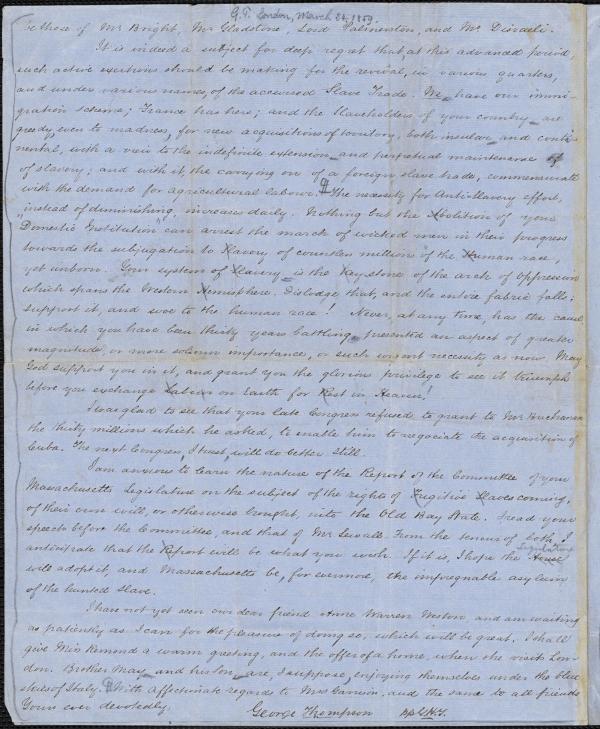 G.T. London, March 24, 1859.
be those of Mr Bright, Mr Gladstone, Lord Palmerston, and Mr Disraeli.
It is indeed a subject for deep regret that, at this advanced period,
such active exertions should be making for the revival, in various quarters,
and under various names, of the accursed Slave Trade. We have our immi-
gration scheme; France has hers; and the Slaveholders of your country are
greedy, even to madness, for new acquisitions of territory, both insular and conti-
nental, with a view to the indefinite extension and perpetual maintenance of
of slavery; and with it, the carrying on of a foreign slave trade, commensurate
with the demand for agricultural labour. ¶ The necessity for Anti-slavery effort,
instead of diminishing, increases daily. Nothing but the Abolition of your
Domestic Institution can arrest the march of wicked men in their progress
towards the subjugation to Slavery of countless millions of the Human race,
yet unborn. Your system of Slavery is the Keystone of the arch of Oppression
which spans the Western Hemisphere. Dislodge that, and the entire fabric falls:
support it, and woe to the human race! Never, at any time, has the cause
in which you have been thirty years battling presented an aspect of greater
magnitude, or more solemn importance, or such urgent necessity as now. May
God support you in it, and grant you the glorious privilege to see it triumph
before you exchange Labour on Earth for Rest in Heaven!
I was glad to see that your late Congress refused to grant to Mr Buchanan
the thirty millions which he asked, to enable him to negociate the acquisition of
Cuba. The next Congress, I trust, will do better still.
I am anxious to learn the nature of the Report of the Committee of your
Massachusetts Legislature on the subject of the rights of Fugitive Slaves coming,
of their own will, or otherwise brought, into the Old Bay State. I read your
speech before the Committee, and that of Mr Sewall. From the tenour of both, I
anticipate that the Report will be what you wish. If it is, I hope the House Legislature
will adopt it, and Massachusetts be, for evermore, the impregnable asylum
of the hunted slave.
I have not yet seen our dear friend Anne Warren Weston and am waiting
as patiently as I can for the pleasure of doing so, which will be great. I shall
give Miss Remond a warm greeting, and the offer of a home, when she visits Lon-
don. Brother May and his son are, I suppose, enjoying themselves under the blue
skies of Italy. ¶ With affectionate regards to Mrs Garrison, and the same to all friends
Yours ever devotedly,
George Thompson